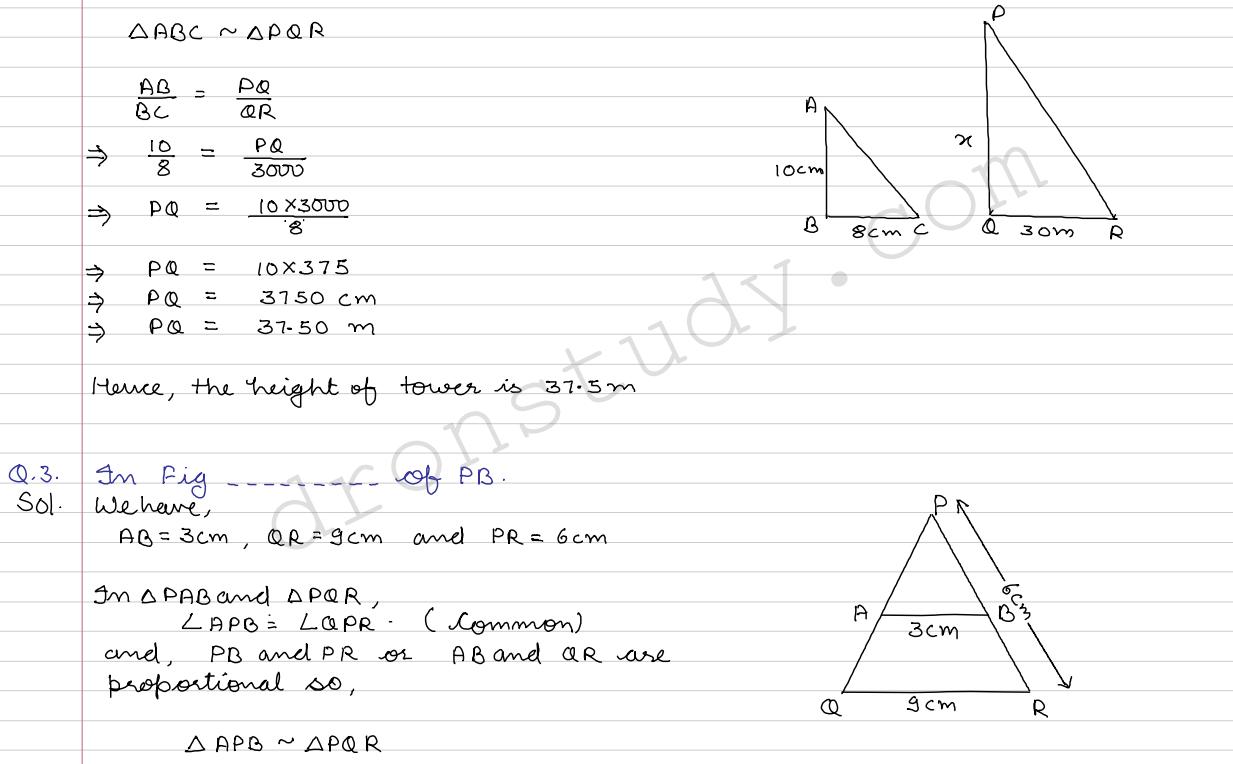 △ABC ~ △PQR
AB/BC = PQ/QR
⇒ 10/8 = PQ/3000
⇒ PQ = 10×3000/8
⇒ PQ = 10×375
⇒ PQ = 3750 cm
⇒ PQ = 37.50 m
Hence, the height of tower is 37.5m
P
A
x
10cm
B 8cm C Q 30m R
Q.3. In Fig --------- of PB.
Sol. We have,
AB = 3cm, QR = 9cm and PR = 6cm
In △PAB and △PQR,
∠APB = ∠QPR. (Common)
and, PB and PR or AB and QR are
proportional so,
△APB ~ △PQR
P
6cm
A B
3cm
Q 9cm R
dronstudy.com